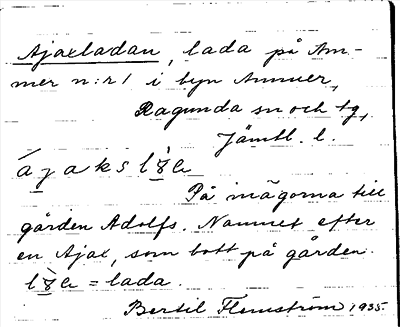 Ajaxladan, lada på Am-
mer n:r 1 i byn Ammer,
Ragunda sn och tg,
Jämtl. l.
På mägorna till
gården Adolfs. Namnet efter
en Ajax, som bott på gården.
= lada.
Bertil Flemström, 1935.